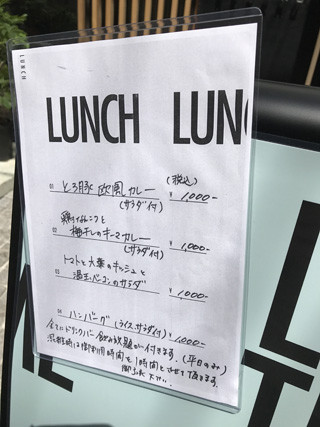 LUNCH
LUNCH LUNC
(税込)
01 とろ豚 欧風カレー ¥1,000-
(サラダ付)
02 梅干しのキーマカレー ¥1,000-
(サラダ付)
トマトと大葉のキッシュと
03 温玉ベーコンのサラダ ¥1,000-
04 ハンバーグ (ライス、サラダ付) ¥1,000-
全てにドリンクバー飲み放題が付きます。(平日のみ)
混雑時は御利用時間を1時間とさせて頂きます。
L
T